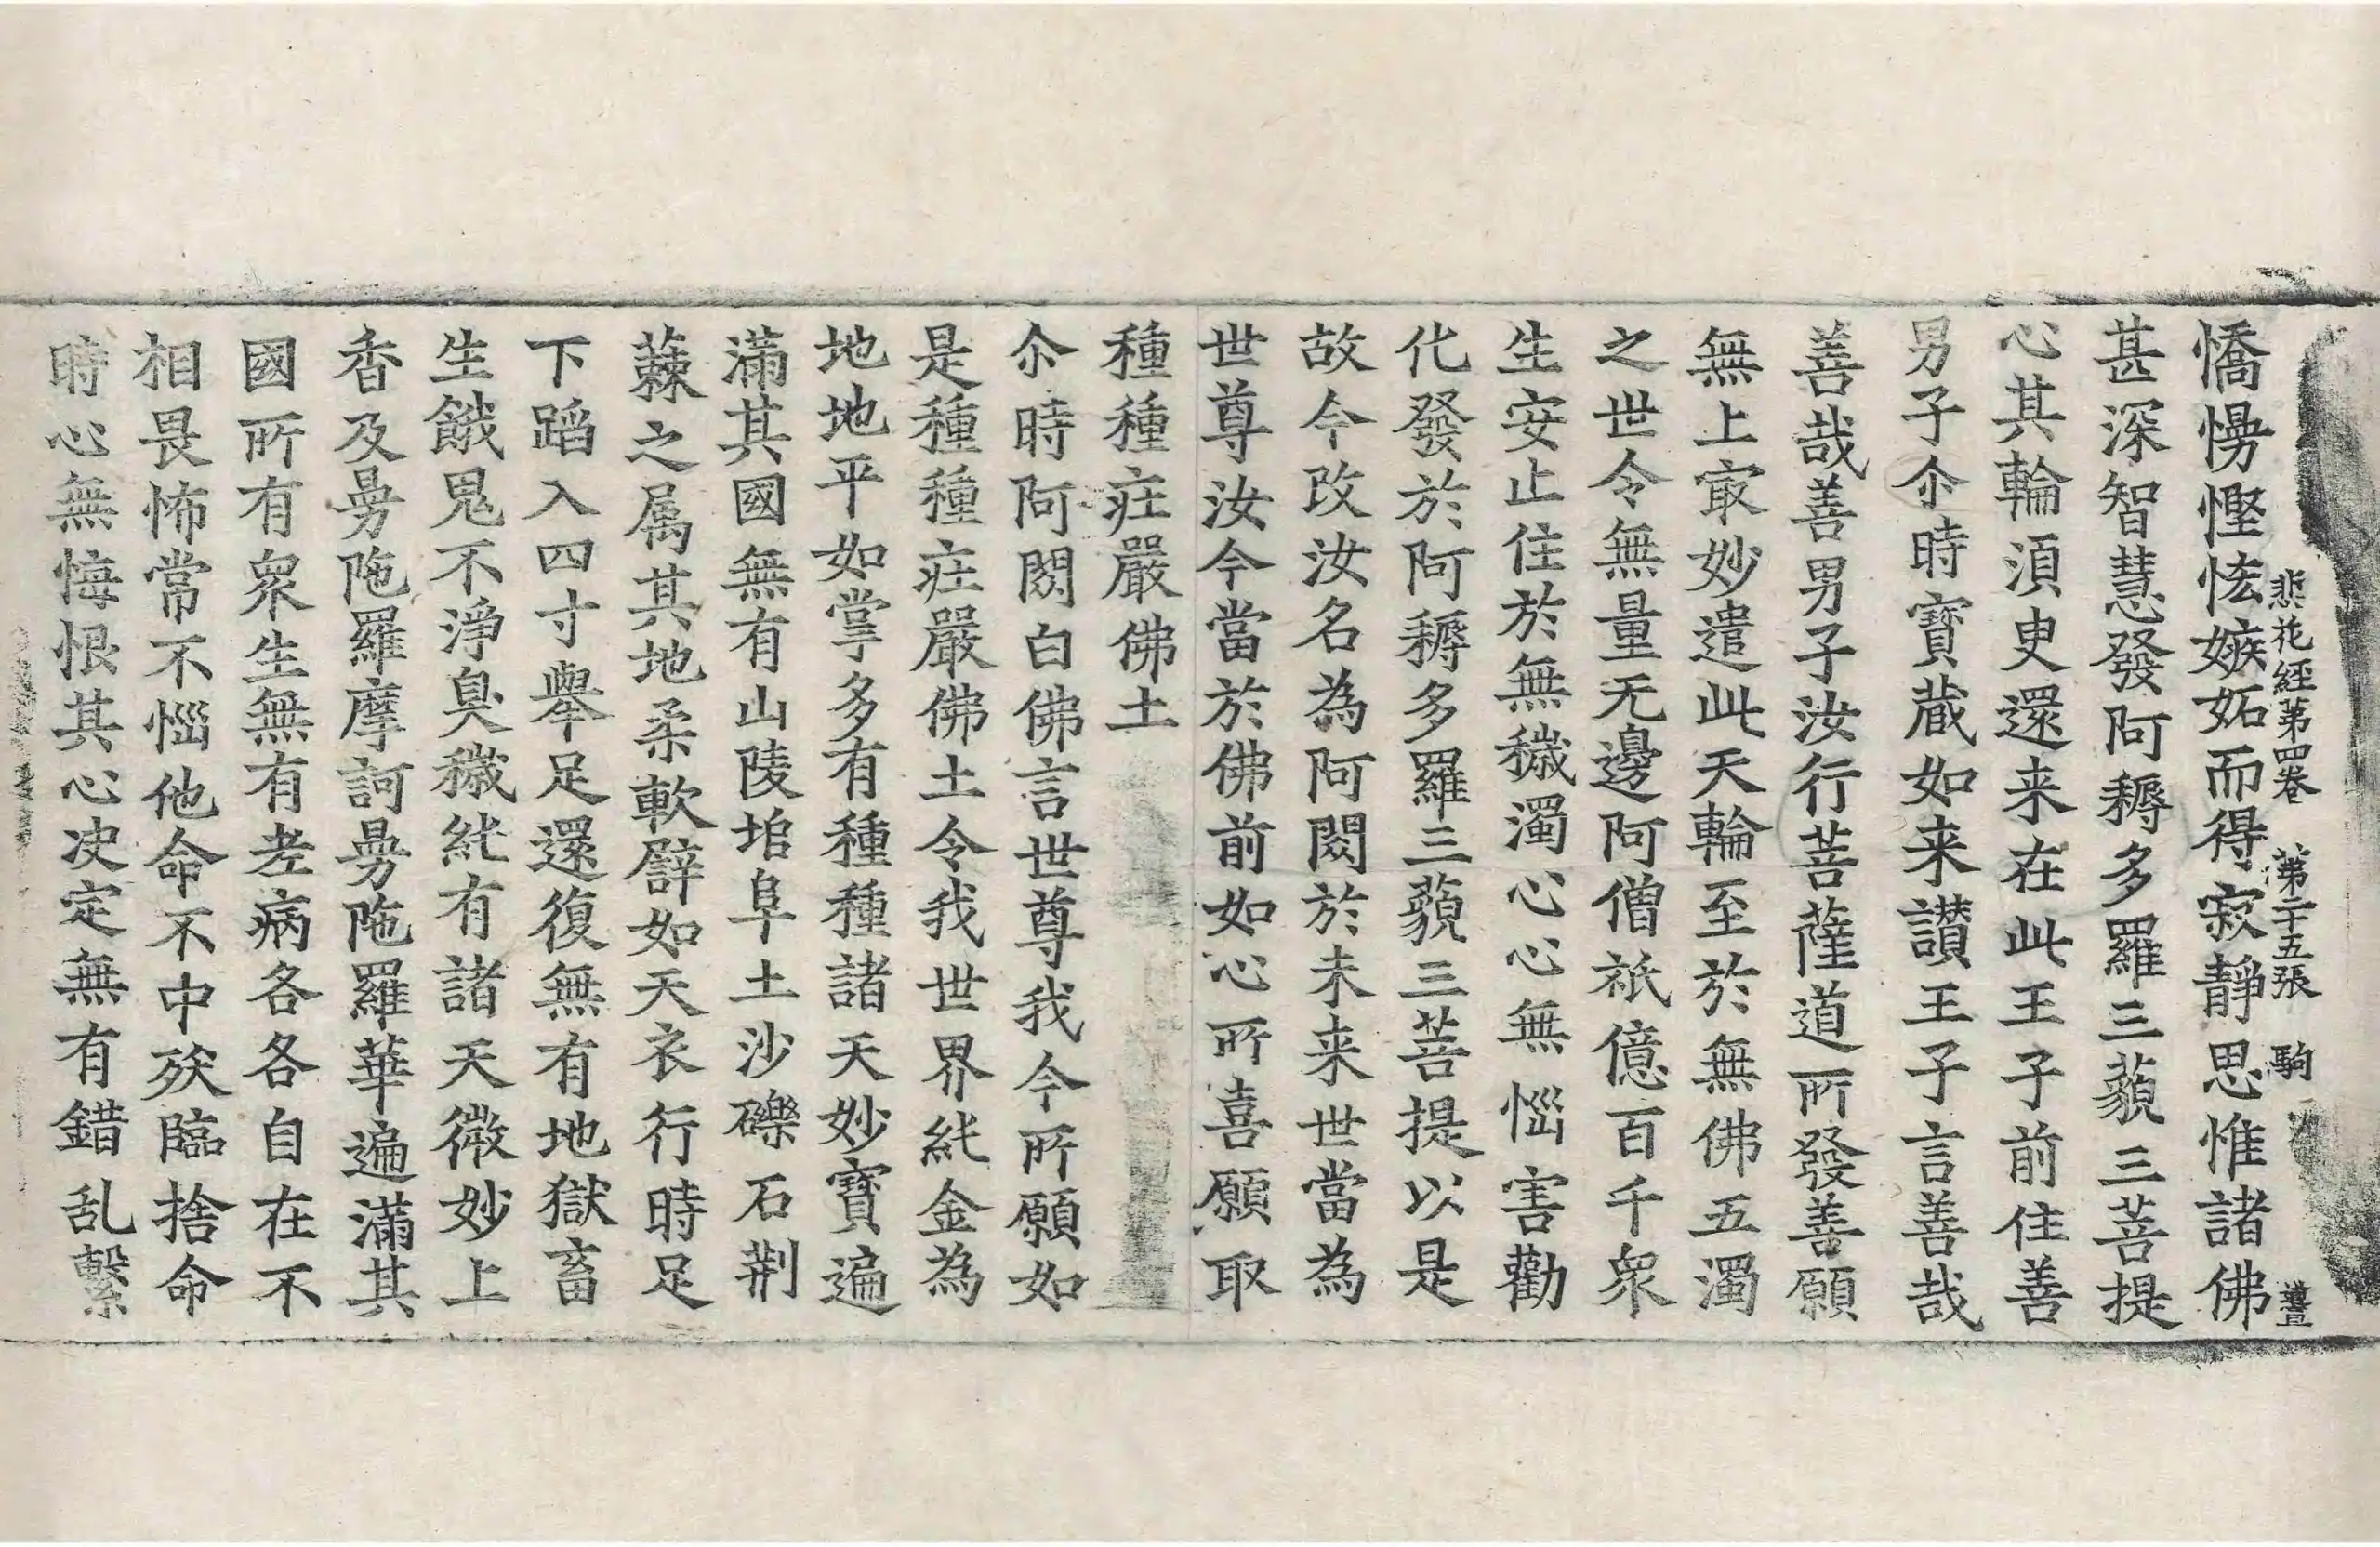 悲花經第四卷 第二十五張 駒
憍慢慳悋嫉妬而得寂靜思惟諸佛
甚深智慧發阿耨多羅三藐三菩提
心其輪須臾還来在此王子前住善
男子尒時寶蔵如来讃王子言善哉
善哉善男子汝行菩薩道所發善願
無上㝡妙遣此天輪至於無佛五濁
之世令無量无邊阿僧祇億百千衆
生安止住於無穢濁心心無惱害勸
化發於阿耨多羅三藐三菩提以是
故今改汝名為阿閦於未来世當為
世尊汝今當於佛前如心所喜願取
種種疘嚴佛土
尒時阿閦白佛言世尊我今所願如
是種種疘嚴佛土令我世界純金為
地地平如掌多有種種諸天妙寶遍
滿其國無有山陵塠阜土沙礫石荆
蕀之属其地柔軟辟如天衣行時足
下蹈入四寸舉足還復無有地獄畜
生餓鬼不淨臭穢純有諸天微妙上
香及曼陁羅摩訶曼陁羅華遍滿其
國所有衆生無有老病各各自在不
相畏怖常不惱他命不中殀臨捨命
時心無悔恨其心决定無有錯乱繫